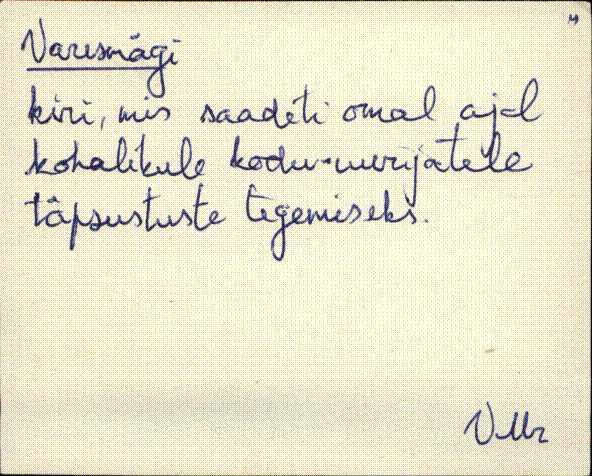 Varesmägi
kiri, mis saadeti omal ajal
kohalikule kodu-uurijatele
täpsustuste tegemiseks.